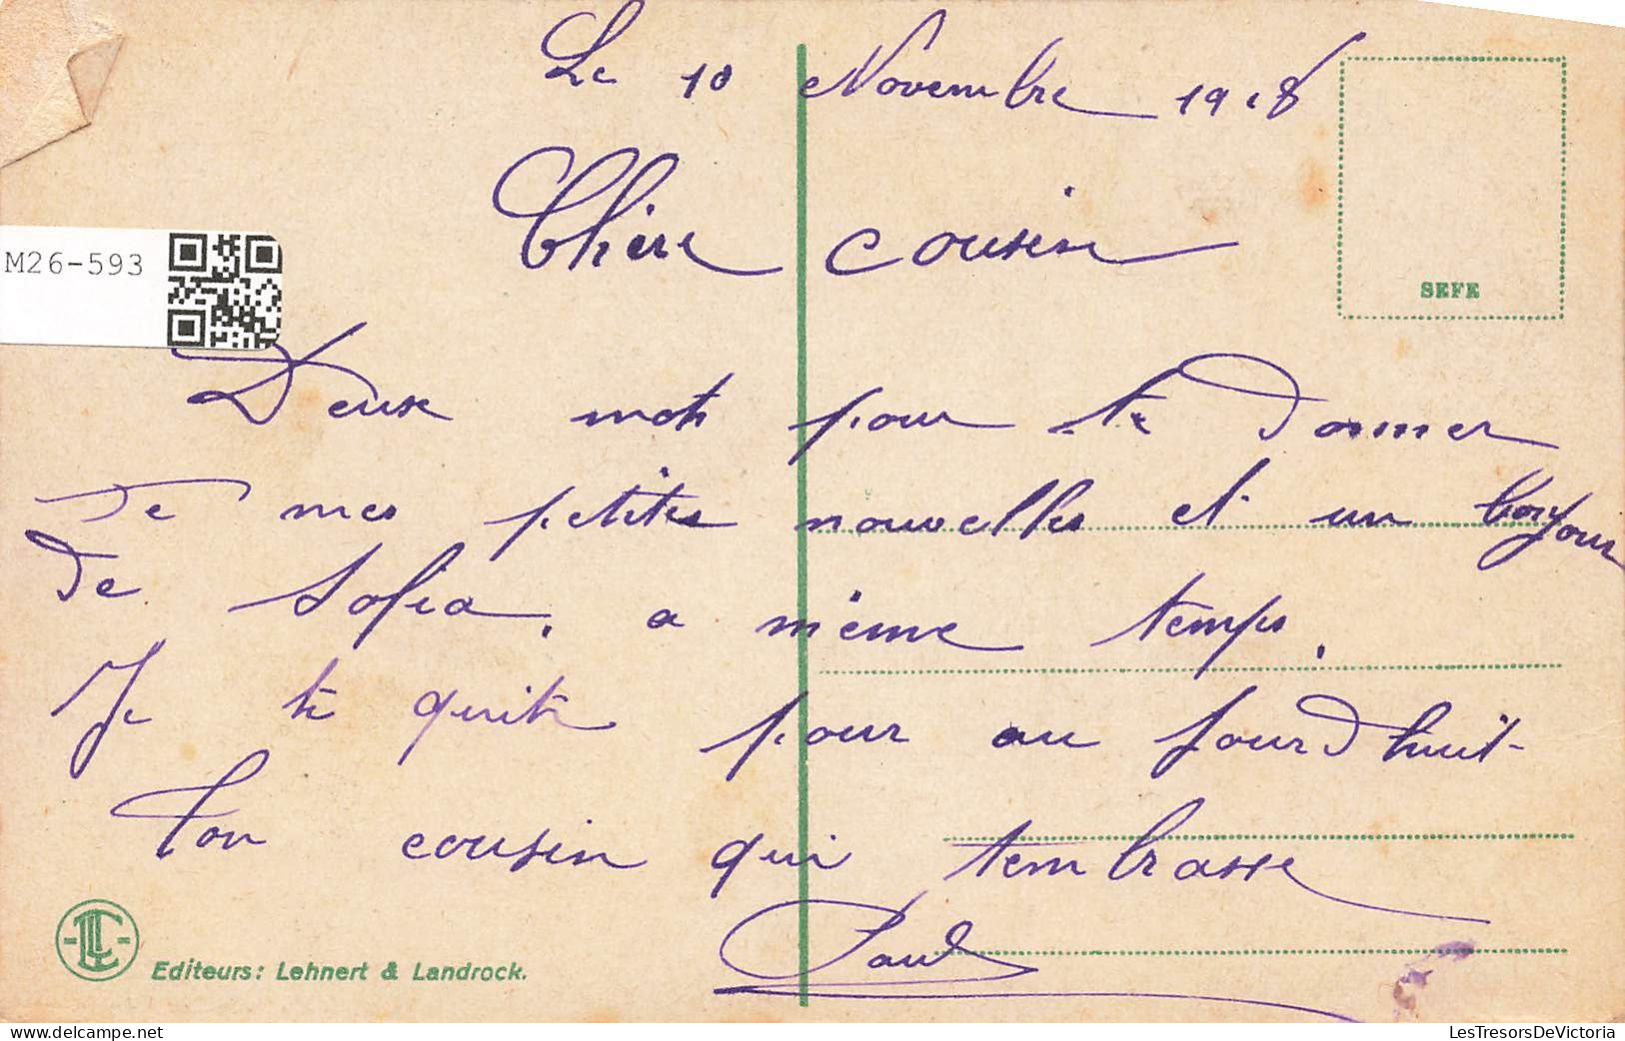 Le 10 Novembre 1918
Chère cousin
SEFE
M26-593
Deux mots pour te donner
de mes petites nouvelles et un bonjour
de Sofia. a même temps.
Je te quite pour au jourd huit
Ton cousin qui tembrasse
Paul
Editeurs: Lehnert & Landrock.
LesTresorsDeVictoria